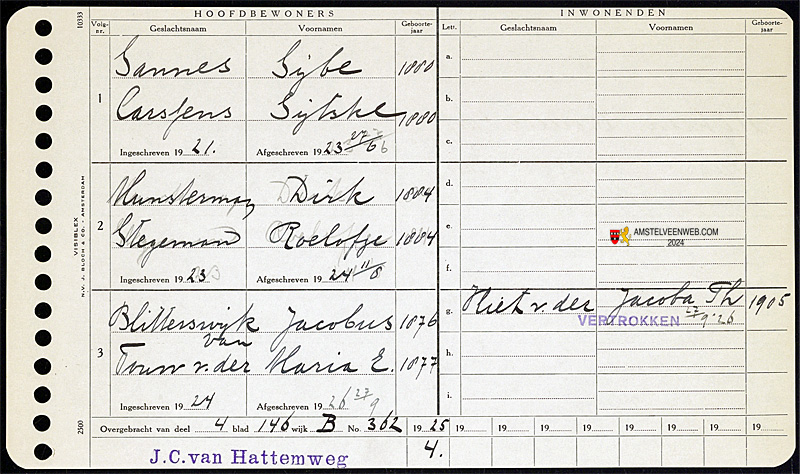 HOOFDBEWONERS INWONENDEN
Volg-nr. Geslachtsnaam Voornamen Geboorte-jaar Letr. Geslachtsnaam Voornamen Geboorte-jaar
10333
Sannes Sijbe 1880 a.
1 Carstens Sijtske 1880 b.
Ingeschreven 19 21. Afgeschreven 19 23 27/6 c.
Munsterman Dirk 1884 d.
2 Stegeman Roelofje 1884 e.
Ingeschreven 19 23 Afgeschreven 19 24 11/8 f.
AMSTELVEENWEB.COM
2024
VISIBLEX
N.V. J. BLOCH & CO. - AMSTERDAM
Blitterswijk van Jacobus 1876 g. Hiet v. der Jacoba Th 1905
VERTROKKEN 27/9'26
3 Touw v. der Maria E. 1877 h.
Ingeschreven 19 24 Afgeschreven 19 26 27/9 i.
2500
Overgebracht van deel 4 blad 146 wijk B No. 362 19 25 19 19 19 19 19 19 19 19
J.C.van Hattemweg 4.